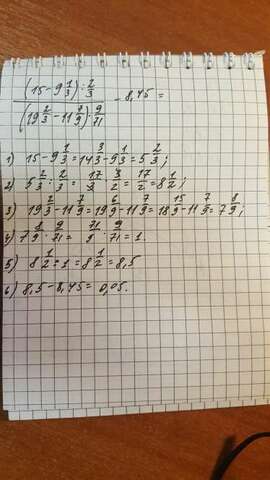 (15 - 9 1/3) : 2/3
(19 2/3 - 11 7/9) · 9/71
- 8,45 =
1) 15 - 9 1/3 = 14 3/3 - 9 1/3 = 5 2/3;
2) 5 2/3 : 2/3 = 17/3 · 3/2 = 17/2 = 8 1/2;
3) 19 2/3 - 11 7/9 = 19 6/9 - 11 7/9 = 18 15/9 - 11 7/9 = 7 8/9;
4) 7 8/9 · 9/71 = 71/9 · 9/71 = 1.
5) 8 1/2 : 1 = 8 1/2 = 8,5
6) 8,5 - 8,45 = 0,05.